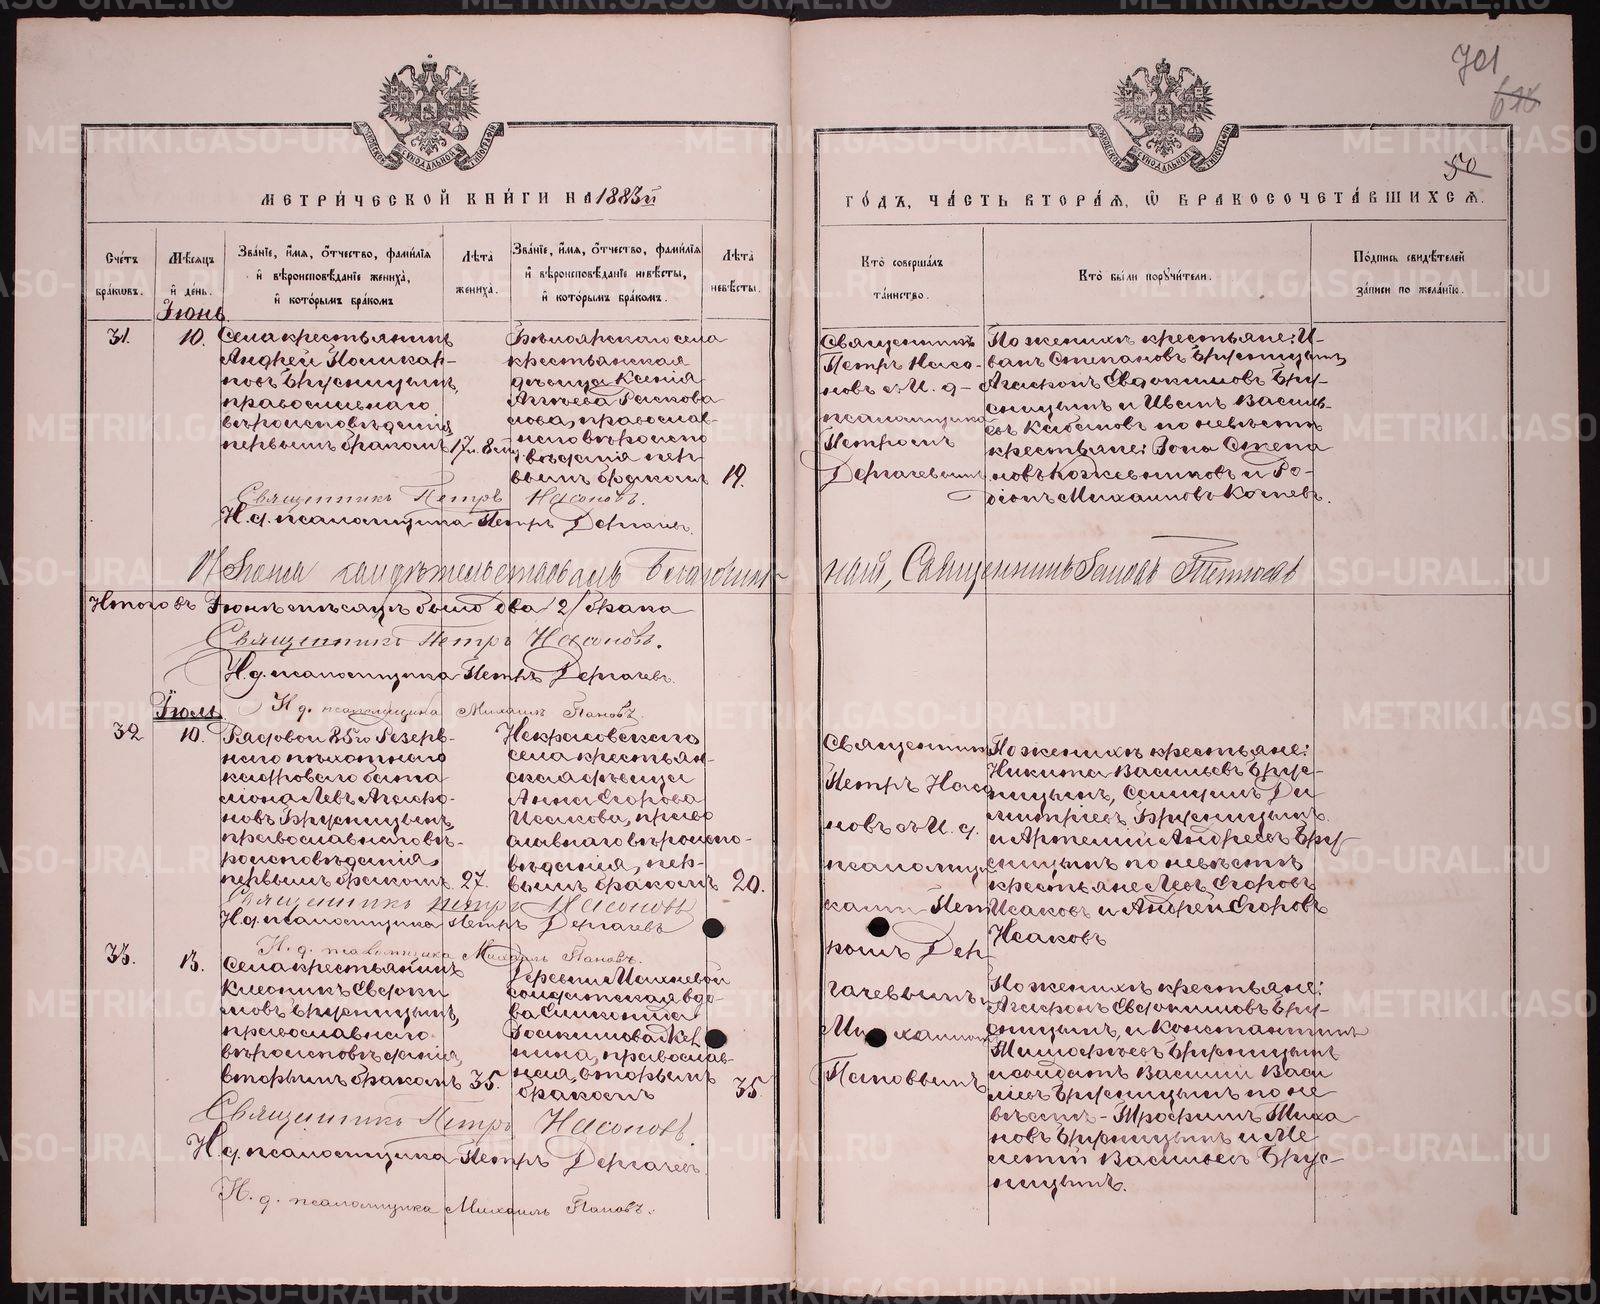 701
50
МЕТРИЧЕСКОЙ КНИГИ НА 1883й
ГОДЪ, ЧАСТЬ ВТОРАЯ, Ѡ БРАКОСОЧЕТАВШИХСЯ.
Счетъ браковъ.
Мѣсяцъ и день.
Званіе, имя, отчество, фамилія и вѣроисповѣданіе жениха, и которымъ бракомъ
Лѣта жениха.
Званіе, имя, отчество, фамилія и вѣроисповѣданіе невѣсты, и которымъ бракомъ.
Лѣта невѣсты.
Кто совершалъ таинство.
Кто были поручители.
Подпись свидѣтелей записи по желанію.
Іюнь
31.
10.
Села крестьянинъ
Андрей Поликар-
повъ Брусницынъ,
православнаго
вѣроисповѣданія
первымъ бракомъ
17 л. 8 м.
Бѣлоярскаго села
крестьянская
дѣвица Ксенія
православ-
наго вѣроиспо
вѣданія пер-
вымъ бракомъ
19.
Священникъ
Петръ Насо-
новъ съ И. д.
псаломщика
Петромъ
Дергачевымъ
По женихѣ крестьяне: И-
ванъ Степановъ Брусницынъ,
Агафонъ Евдокимовъ Бру-
сницынъ и Иванъ Василь-
евъ по невѣстѣ
крестьяне: Зотъ Степа
новъ Кожевниковъ и Ро-
діонъ Михаиловъ
Священникъ Петръ Насоновъ.
И. д. псаломщика Петръ Дергачевъ.
Благочин-
ный, Священникъ
Итого въ Іюнѣ мѣсяцѣ было два /2/ брака
Священникъ Петръ Насоновъ.
И д. псаломщика Петръ Дергачевъ.
И д. псаломщика Михаилъ Пановъ
Іюль
32
10.
Рядовой 85го Резерв-
наго пѣхотнаго
кадроваго бата
ліона Левъ Агафо-
новъ Брусницынъ,
православнаго вѣ-
роисповѣданія,
первымъ бракомъ
27.
Некрасовскаго
села крестьян-
ская дѣвица
Анна Егорова
Исакова, право
славнаго вѣроиспо-
вѣданія, пер-
вымъ бракомъ
20.
Священникъ
Петръ Насо
новъ съ И. д.
псаломщи
ками Пет
ромъ Дер
гачевымъ и
Михаиломъ
Пановымъ
По женихѣ крестьяне:
Никита Васильевъ Брус-
ницынъ, Самуилъ Ди
митріевъ Брусницынъ
и Артемій Андреевъ Бру
сницынъ по невѣстѣ
крестьяне Левъ Егоровъ
Исаковъ и Андрей Егоровъ
Исаковъ
Священникъ Петръ Насоновъ
И д. псаломщика Петръ Дергачевъ
И. д. псаломщика Михаилъ Пановъ.
33.
13.
Села крестьянинъ
Евдоки
мовъ Брусницынъ,
православнаго
вѣроисповѣданія,
вторымъ бракомъ
35.
Деревни
солдатская вдо-
ва
православ-
ная, вторымъ
бракомъ
35.
По женихѣ крестьяне:
Агафонъ Евдокимовъ Бру-
сницынъ, и Константинъ
Тимофеевъ Брусницынъ
и солдатъ Василій Васи
ліевъ Брусницынъ по не
вѣстѣ - Трофимъ
новъ Брусницынъ и Ме
летій Васильевъ Брус-
ницынъ.
Священникъ Петръ Насоновъ.
И д. псаломщика Петръ Дергачевъ
И. д. псаломщика Михаилъ Пановъ.
METRIKI.GASO-URAL.RU